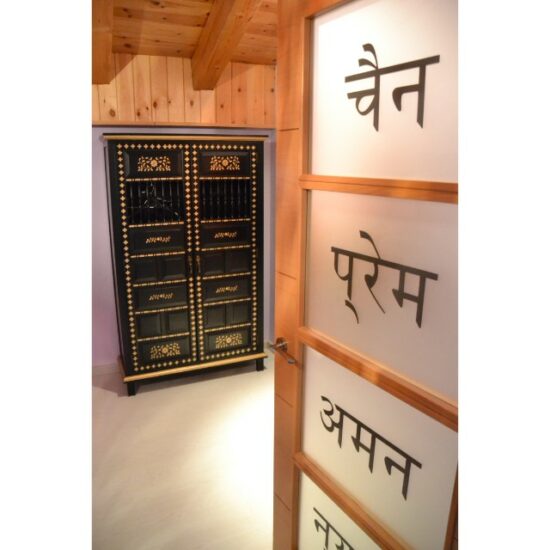 चैन
प्रेम
अमन